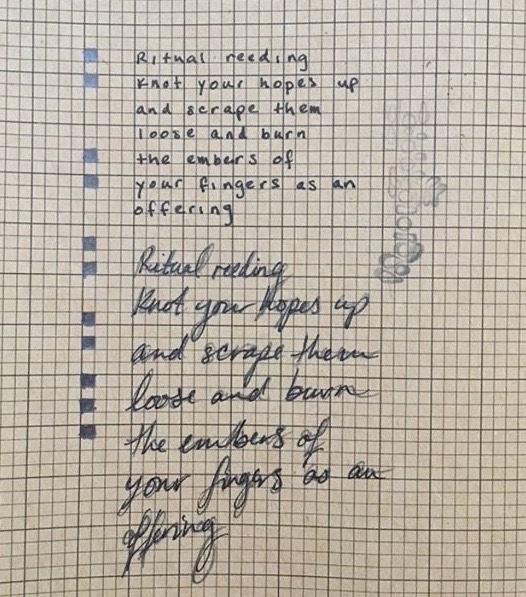 Ritual reeding
Knot your hopes up
and scrape them
loose and burn
the embers of
your fingers as an
offering
Ritual reeding
Knot your hopes up
and scrape them
loose and burn
the embers of
your fingers as an
offering